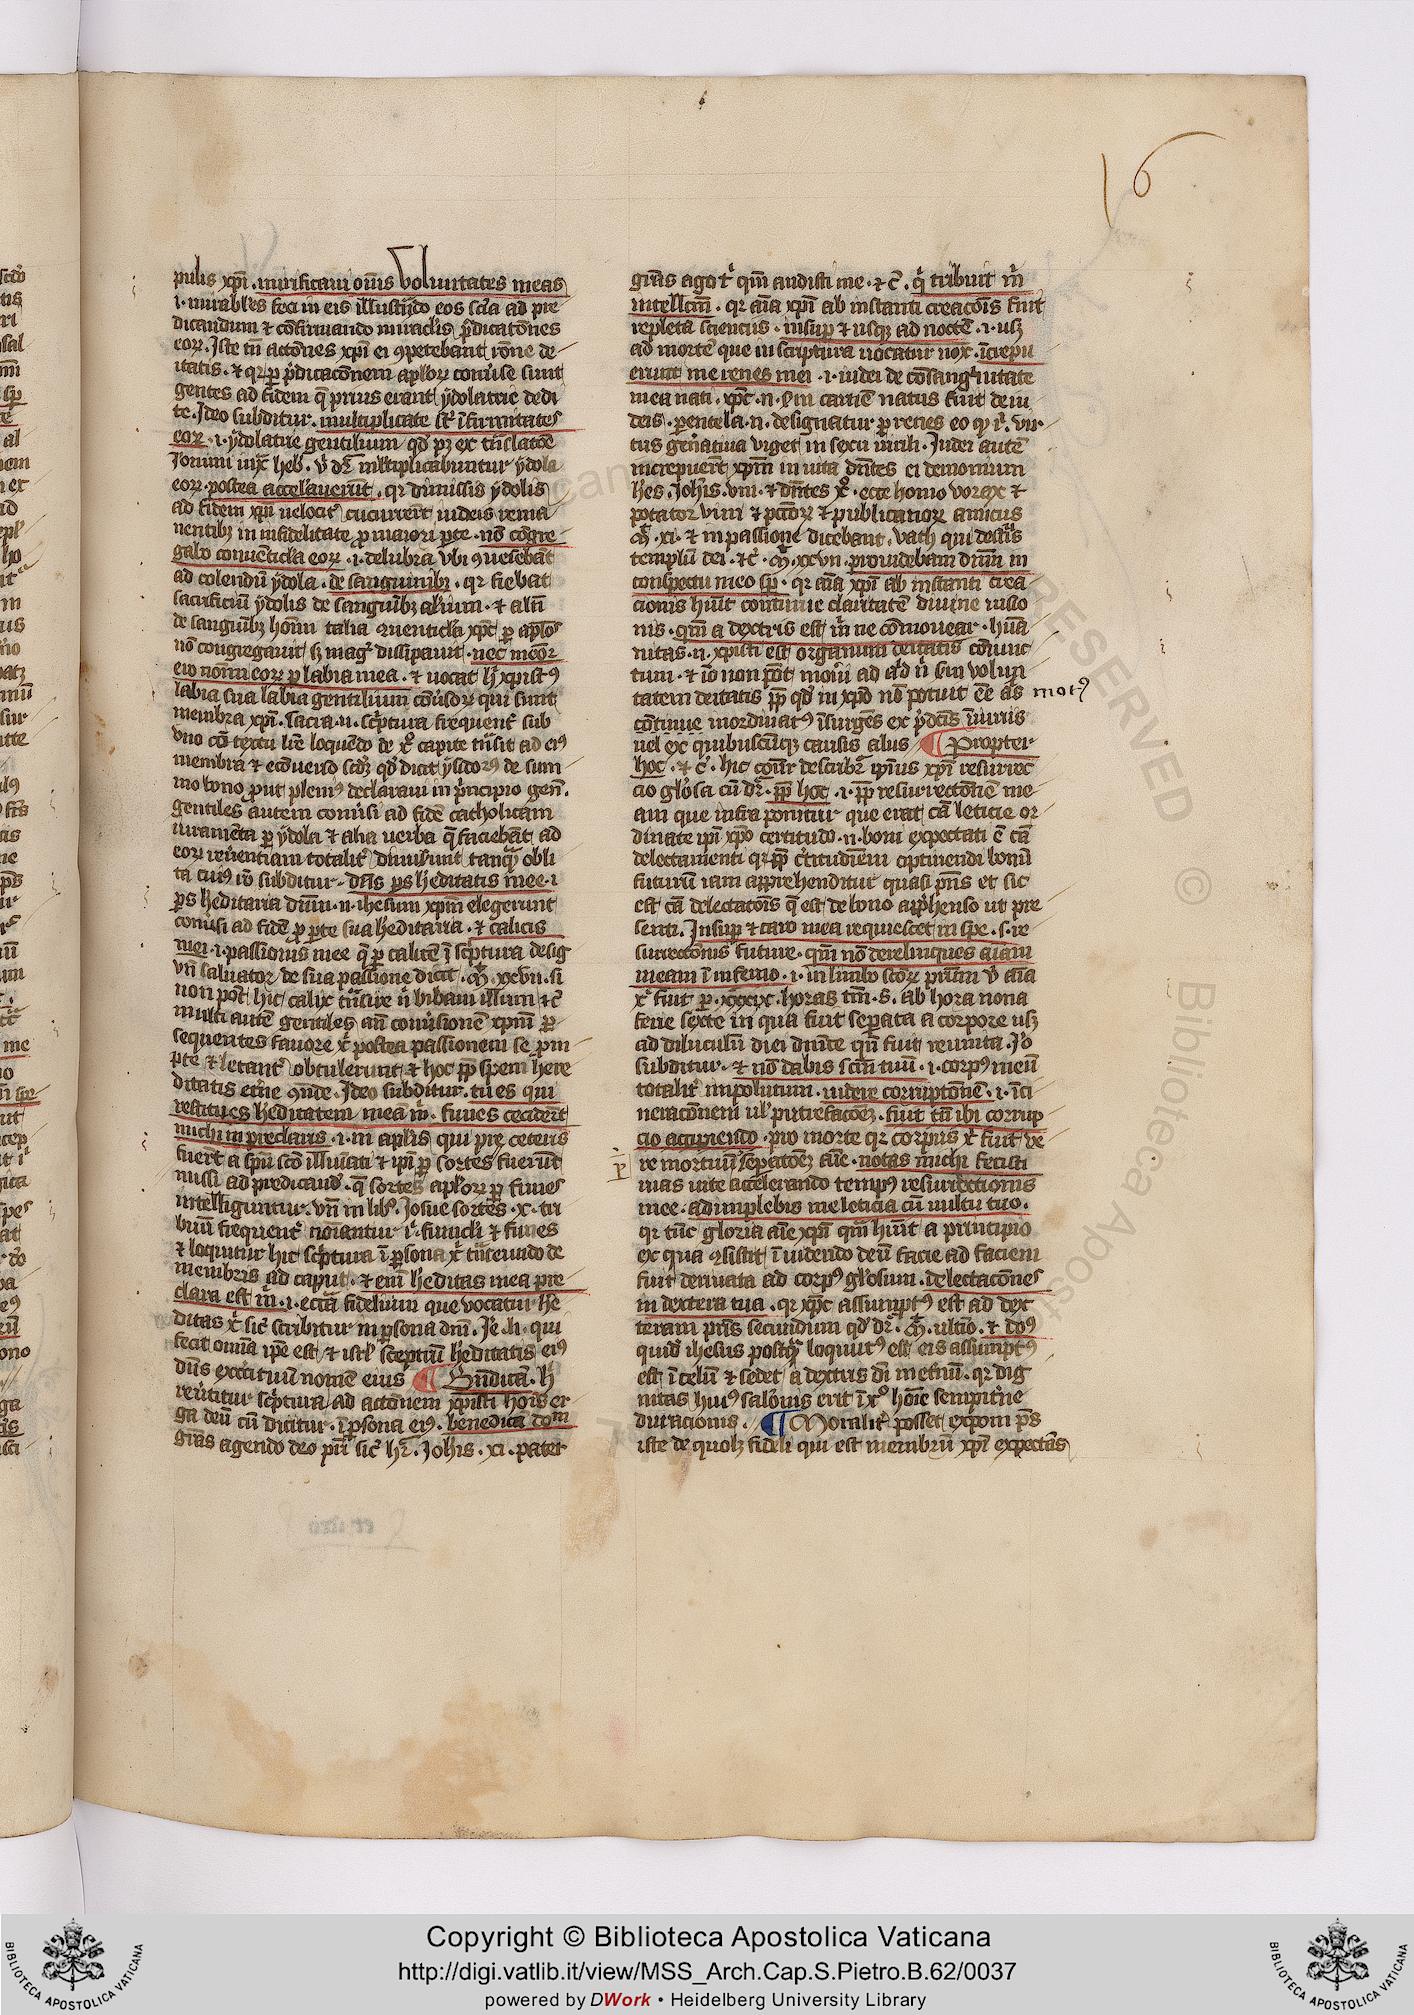 16
pulis xpi. mirificavit omes voluntates meas
i. mirabiles fecit in eis illustrando eos scia ad pre
dicandum et confirmando miraclis predicationes
eorum. Iste tn actiones xpi ei competebant rone de
itatis. et qr per predicationem aplorum converse sunt
gentes ad fidem que prius erant ydolatrie dedi
te. Ideo subditur. multiplicate st infirmitates
eorum. i. ydolatrie gentilium qd pz ex translatione
Ieronimi iuxta heb. ubi dr multiplicabuntur ydola
eorum. postea acceleraverunt. qr dimissis ydolis
ad fidem xpi velociter cucurrerunt iudeis rema
nentibz in infidelitate pro maiori parte. non congre
gabo conventicla eorum. i. delubra ubi conveniebant
ad colendum ydola. de sanguinibz. qr fiebat
sacrificium ydolis de sanguinibz alium. et aliqn
de sanguinibz hominum talia conventicla xpc per aplos
non congregavit sz magis dissipavit. nec memor
ero nominum eorum per labia mea. et vocat hic xpistus
labia sua labia gentilium conversorum qui sunt
membra xpi. sacra. n. scriptura frequenter sub
uno contextu lre loquendo de xo capite transit ad eius
membra et econverso scdm qd dicit ysidorus de sum
mo bono prout plenius declaravi in principio gen.
gentiles autem conversi ad fidem catholicam
iuramenta per ydola et alia verba que faciebant ad
eorum reverentiam totaliter dimiserunt tanquam obli
ta cuius ideo subditur. dns pars hereditatis mee. i.
pars hereditaria dnm. n. ihesum xpm elegerunt
conversi ad fidem pro parte sua hereditaria. et calicis
mei. i. passionis mee que per calicem in scriptura desig
natur unde salvator de sua passione dicit. Mt. xxvii. si
non potest hic calix transire nisi bibam illum etc
multi autem gentiles ante conversionem xpm per
sequentes favore xi postea passionem se prom
pte et letanter obtulerunt et hoc propter spem here
ditatis eterne. Ideo subditur. tu es qui
restitues hereditatem meam michi. funes ceciderunt
michi in preclaris. i. in aplis qui pre ceteris
fuerunt a spu sco illuminati et ipsi per sortes fuerunt
missi ad predicandum. que sortes aplorum per funes
intelliguntur. unde in libro Iosue sortes. x. tri
buum frequenter nominantur funiculi et funes
et loquitur hic scriptura in persona xi transeundo de
membris ad caput. et enim hereditas mea pre
clara est michi. i. ecclia fidelium que vocatur he
ditas xi sicut scribitur in persona dni. Ie. li. qui
fecit omnia ipse est et isrl sceptrum hereditatis eius
dns exercituum nomen eius ¶ Benedicam. hic
revertitur scriptura ad actionem xpisti hominis er
ga deum cum dicitur. in persona eius. benedicam dom
gras agendo deo patri sicut hr. Iohis. xi. pater
gras ago tibi qm audisti me. etc. qui tribuit michi
intellcm. qr aia xpi ab instanti creacois fuit
repleta scienciis. insuper et usqz ad noctem. i. usqz
ad mortem que in scriptura vocatur nox. increpu
erunt me renes mei. i. iudei de consanguinitate
mea nati. xpc. n. scdm carnem natus fuit de iu
deis. parentela. n. designatur per renes eo quod ibi vir
tus generativa viget in sexu virili. Iudei autem
increpuerunt xpm in vita dicentes ei demonium
hes. Iohis. viii. et dicentes xo. ecce homo vorax et
potator vini et peccatorum et publicanorum amicus
Mt. xi. et in passione dicebant. vath qui destruis
templum dei. etc. Mt. xxvii. providebam dnum in
conspectu meo sp. qr aia xpi ab instanti crea
cionis habuit continue claritatem divine visio
nis. qm a dextris est michi ne commovear. huma
nitas. n. xpisti est organum deitatis coniunc
tum. et ideo non potest moveri ad aliquid nisi scdm volun
tatem deitatis propter quod in xpo non potuit esse ais motus
continue inordinatus insurgens ex predictis iniuriis
vel ex quibuscumqz causis aliis ¶ Propter
hoc. etc. hic conter describitur ipsius xpi resurrec
cio gloriosa cum dr. propter hoc. i. propter resurrectionem me
am que infra ponitur que erat causa leticie or
dinate ipsi xpo certitudo. n. boni expectati est causa
delectamenti qr propter certitudinem optinendi bonum
futurum iam apprehenditur quasi pns et sic
est causa delectationis que est de bono apprehenso ut pre
senti. Insuper et caro mea requiescet in spe. s. re
surrectionis future. qm non derelinques aiam
meam in inferno. i. in limbo sctorum patrum ubi aia
xi fuit per. xxxix. horas tm. s. ab hora nona
ferie sexte in qua fuit separata a corpore usqz
ad diluculum diei dnice qn fuit reunita. Io
subditur. et non dabis scm tuum. i. corpus meum
totaliter inpolutum. videre corruptionem. i. inci
neracionem vel putrefactionem. fuit tn ibi corrup
cio accipiendo. pro morte qr corpus xi fuit ve
re mortuum separatione aie. notas michi fecisti
vias vite accelerando tempus resurrectionis
mee. adimplebis me leticia cum vultu tuo.
qr tunc gloria aie xpi quam habuit a principio
ex qua consistit in videndo deum facie ad faciem
fuit derivata ad corpus glosum. delectacones
in dextera tua. qr xpc assumptus est ad dex
teram patris secundum qd dr. Mr. ultio. et dns
quidem ihesus postquam loqutus est eis assumptus
est in celum et sedet a dextris dei in eternum. qr dig
nitas huius salonis erit in xo homine sempiterne
duracionis. ¶ Moraliter posset exponi ps
iste de quolz fideli qui est membrum xpi expectans